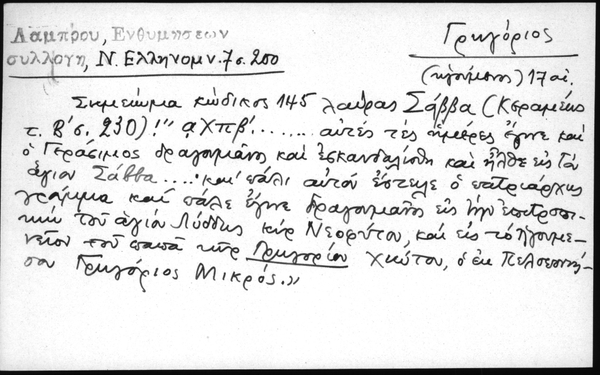 Λάμπρου, Ενθυμήσεων
συλλογή, Ν. Ελληνομν. 7 σ. 200
Γρηγόριος
(ηγούμενος) 17 αι.
Σημείωμα κώδικος 145 Λαύρας Σάββα (Κεραμέως
τ. Β' σ. 230)! "αχπβ'....... αυτές τές ημέρες έγινε και
ο Γεράσιμος δραγομάνος και εσκανδαλίσθη και ήλθε εις τον
άγιον Σάββα..... και πάλι αυτόν έστειλε ο πατριάρχης
γράμμα και πάλε έγινε δραγομάνος εις την επιτροπι-
κήν του αγίου Λύδδης κύρ Νεοφύτου, και εις το ηγουμε-
νείον του παπά κύρ Γρηγορίου Χιώτου, ο εκ Πελοποννή-
σου Γρηγόριος Μικρός.»